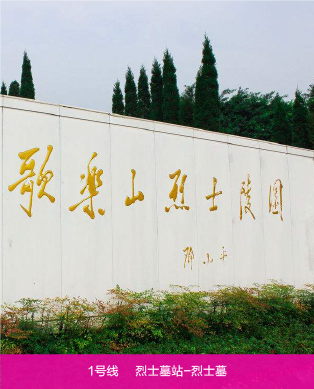 歌樂山烈士陵園
邓小平
1号线 烈士墓站-烈士墓